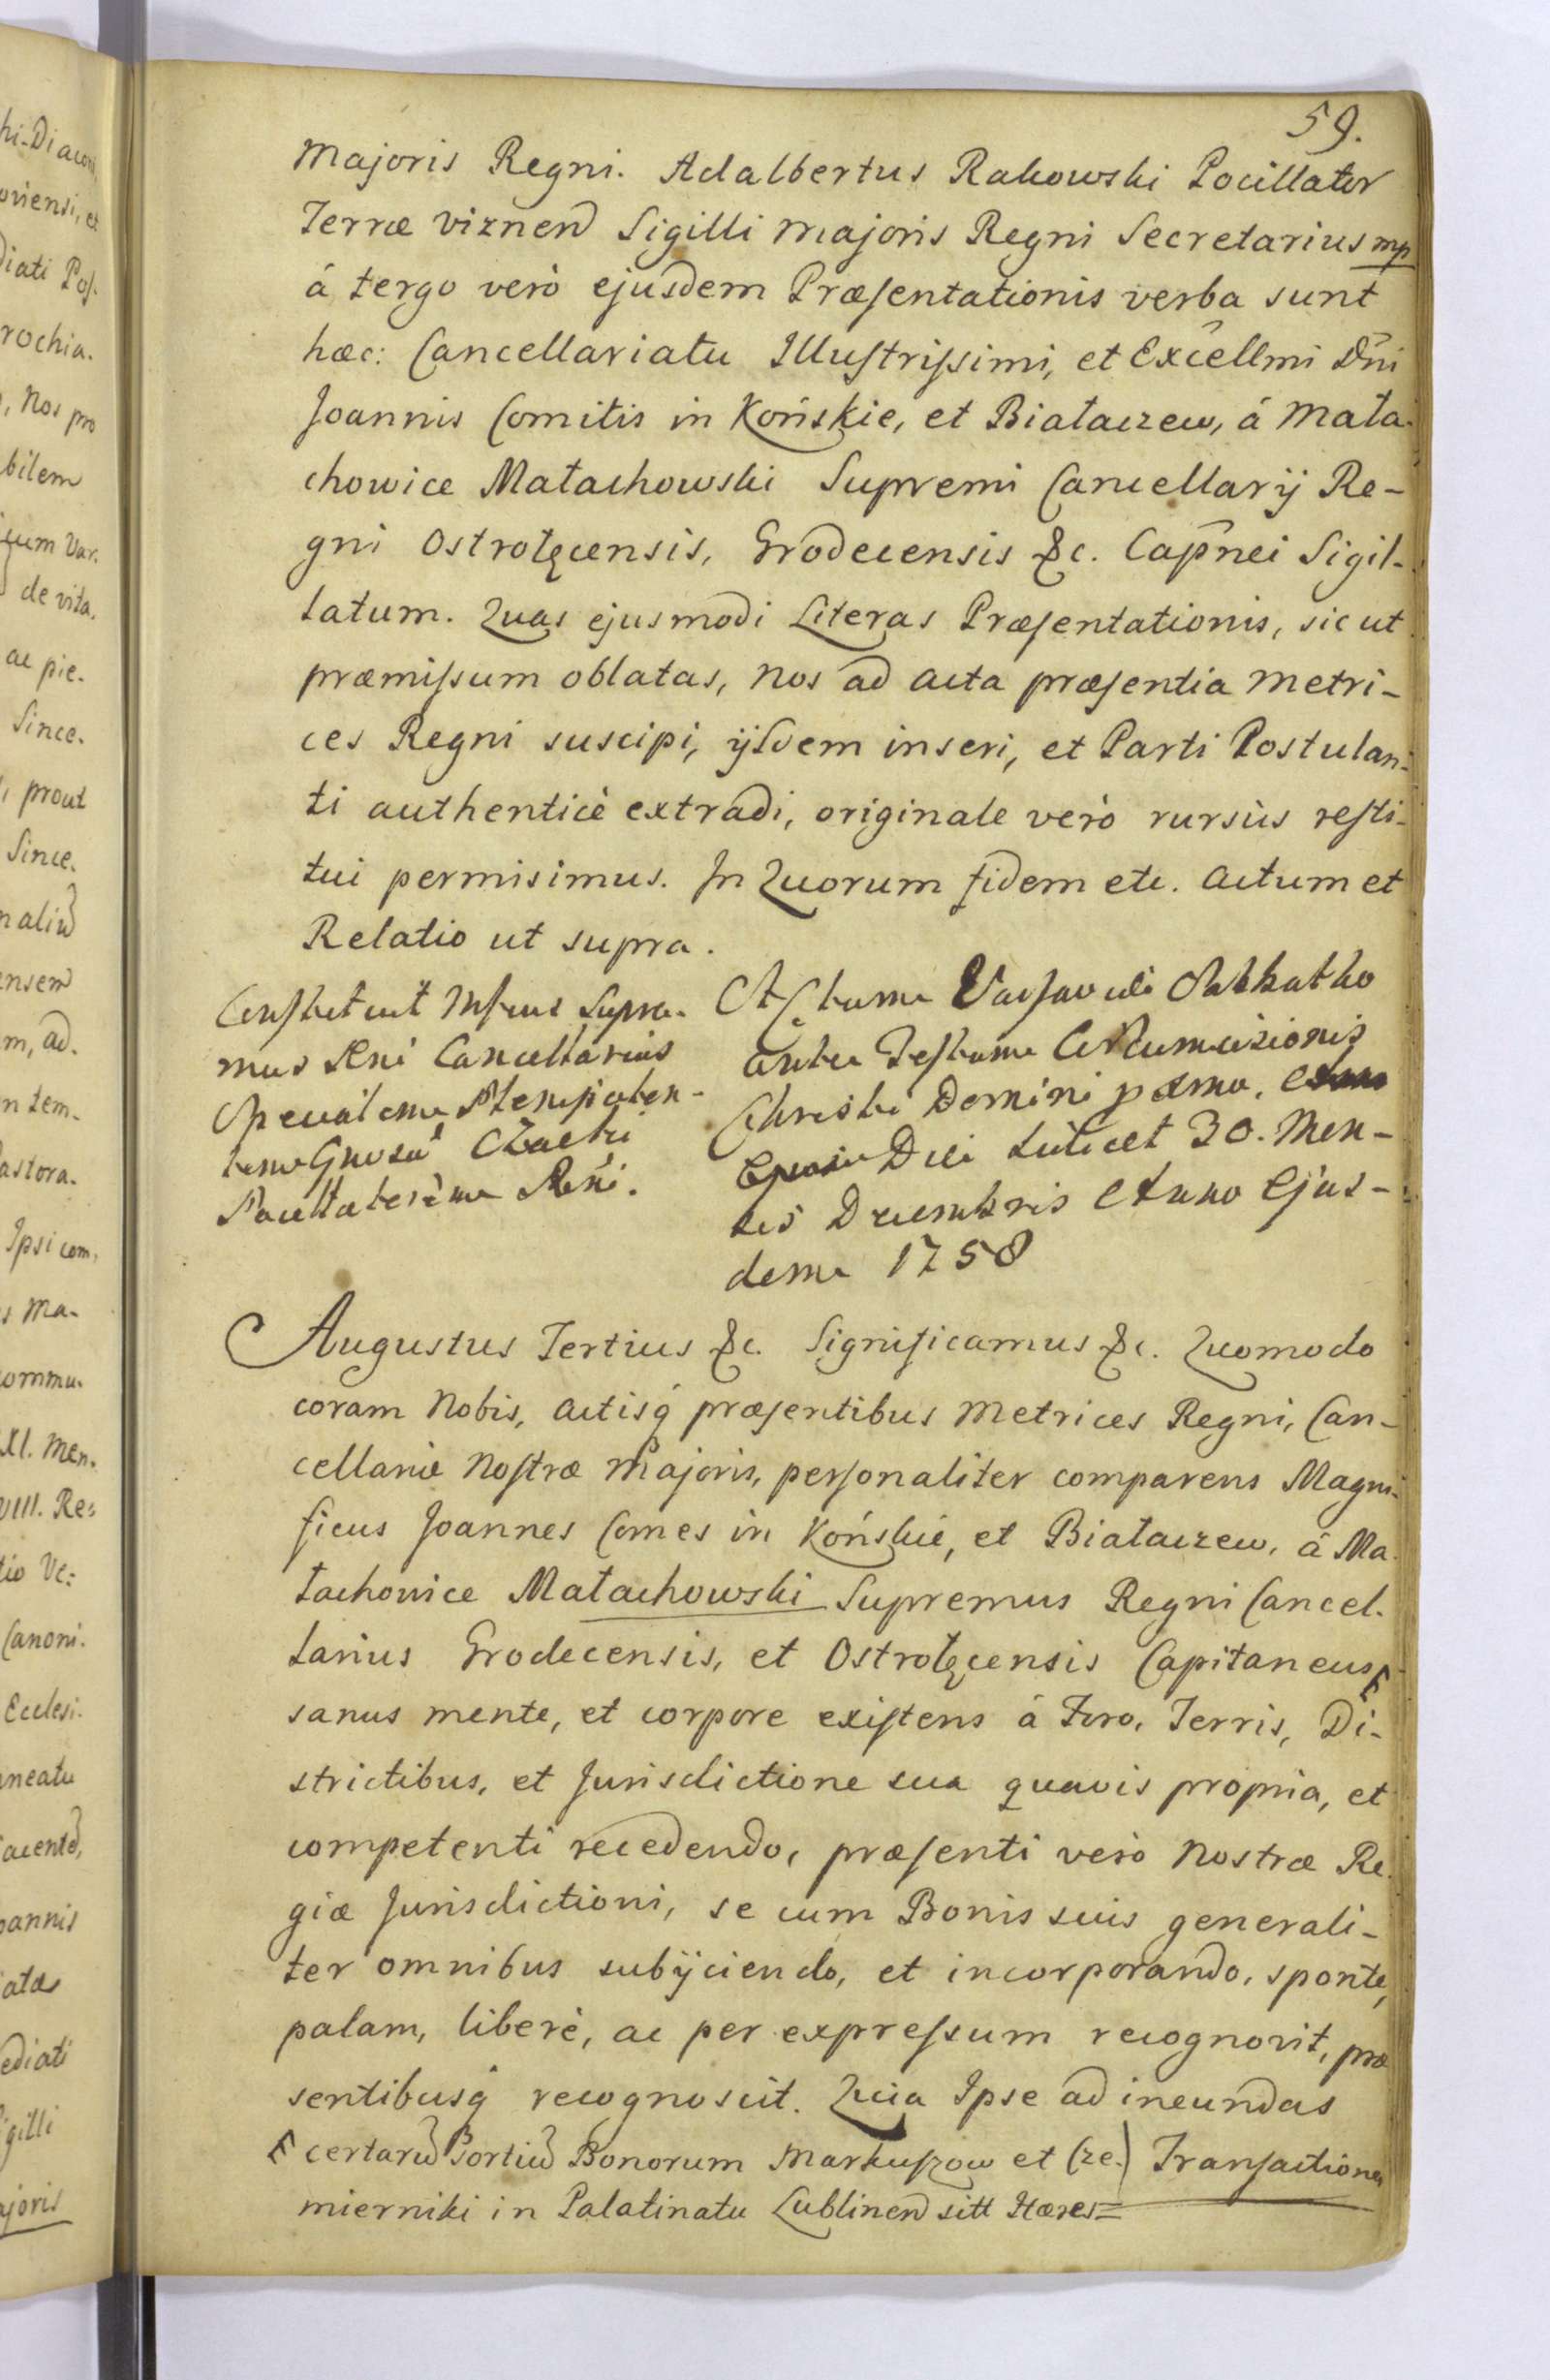 59.
Majoris Regni. Adalbertus Rakowski Pocillator
Terræ Viznen Sigilli Majoris Regni Secretarius mp
á tergo verò ejusdem Præsentationis verba sunt
hæc: Cancellariatu Illustrissimi, et Excellmi Dni
Joannis Comitis in Końskie, et Białaczew, á Mała-
chowice Małachowski Supremi Cancellarij Re-
gni Ostrołęcensis, Grodecensis &c. Capnei Sigil-
latum. Quas ejusmodi Literas Præsentationis, sic ut
præmissum oblatas, Nos ad Acta præsentia Metri-
ces Regni suscipi, ijsdem inseri, et Parti Postulan-
ti authenticè extradi, originale verò rursùs resti-
tui permisimus. In Quorum fidem etc. Actum et
Relatio ut supra.
Constituit Mfcus Supre-
mus Rni Cancellarius
Specialem Plenipoten-
tem Gnosū Czacki
Actum Varsaviæ Sabbatho
ante Festum Circumcisionis
Christi Domini pxmo,
Die scilicet 30. Men-
sis Decembris Anno Ejus-
dem 1758
Augustus Tertius &c. Significamus &c. Quomodo
coram Nobis, Actisq præsentibus Metrices Regni, Can-
cellariæ Nostræ Majoris, personaliter comparens Magni-
ficus Joannes Comes in Końskie, et Białaczew, á Ma-
łachowice Małachowski Supremus Regni Cancel-
larius Grodecensis, et Ostrołęcensis Capitaneus
sanus mente, et corpore existens á Foro, Terris, Di-
strictibus, et Jurisdictione sua quavis propria, et
competenti recedendo, præsenti verò Nostræ Re-
giæ Jurisdictioni, se cum Bonis suis generali-
ter omnibus subijciendo, et incorporando, sponte,
palam, liberè, ac per expressum recognovit, præ
sentibusq recognoscit. Quia Ipse ad ineundas
certarū Portiū Bonorum Markuszow et Cze-) Transactiones
mierniki in Palatinatu Lublinen sitt Hæres=